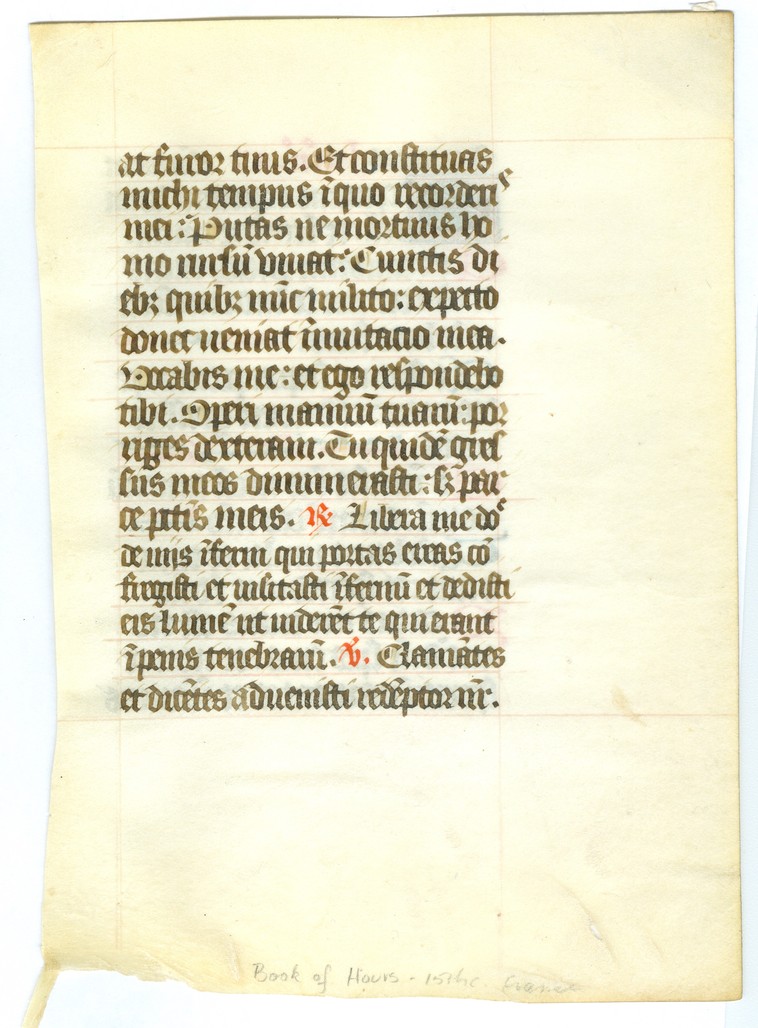 at furor tuus. Et constituas
michi tempus ĩ quo recorderi
s
mei: Putas ne mortuus ho
mo rursũ viuat: Cunctis di
ebꝫ quibꝫ nũc milito: expecto
donec ueniat ĩmutacio mea.
Vocabis me: et ego respondebo
tibi. Operi manuũ tuarũ: por
riges dexteram. Tu quidẽ gres
sus meos dinumerasti: sꝫ par
ce pctĩs meis. ℟. Libera me dñe
de uijs ĩferni qui portas ereas cõ
fregisti et uisitasti ĩfernũ et dedisti
eis lumẽ ut uiderẽt te qui erant
ĩ penis tenebrarũ. ℣. Clamãtes
et dicẽtes aduenisti redẽptor nr̃.
Book of Hours - 15th c. France